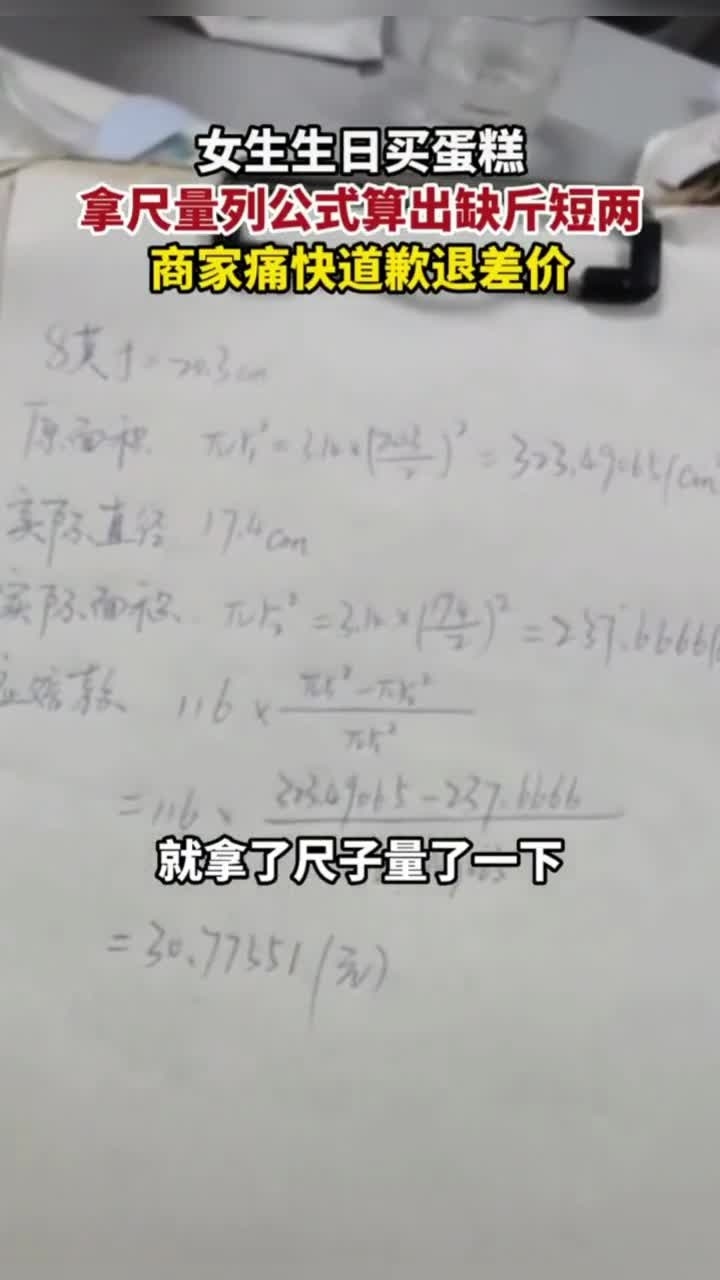 女生生日买蛋糕
拿尺量列公式算出缺斤短两
商家痛快道歉退差价
8英寸=20.3cm
原面积 πr₁²=3.14×(20.3/2)²=323.49065(cm²
实际直径 17.4cm
实际面积 πr₂²=3.14×(17.4/2)²=237.6666(
应赔款 116×(πr₁²-πr₂²)/πr₁²
=116×(323.49065-237.6666)/
就拿了尺子量了一下
=30.77551(元)